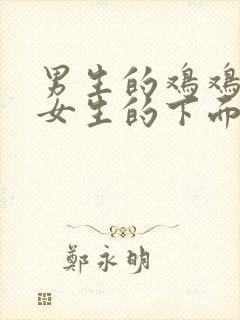 男生的鸡鸡
女生的下而
鄭永明